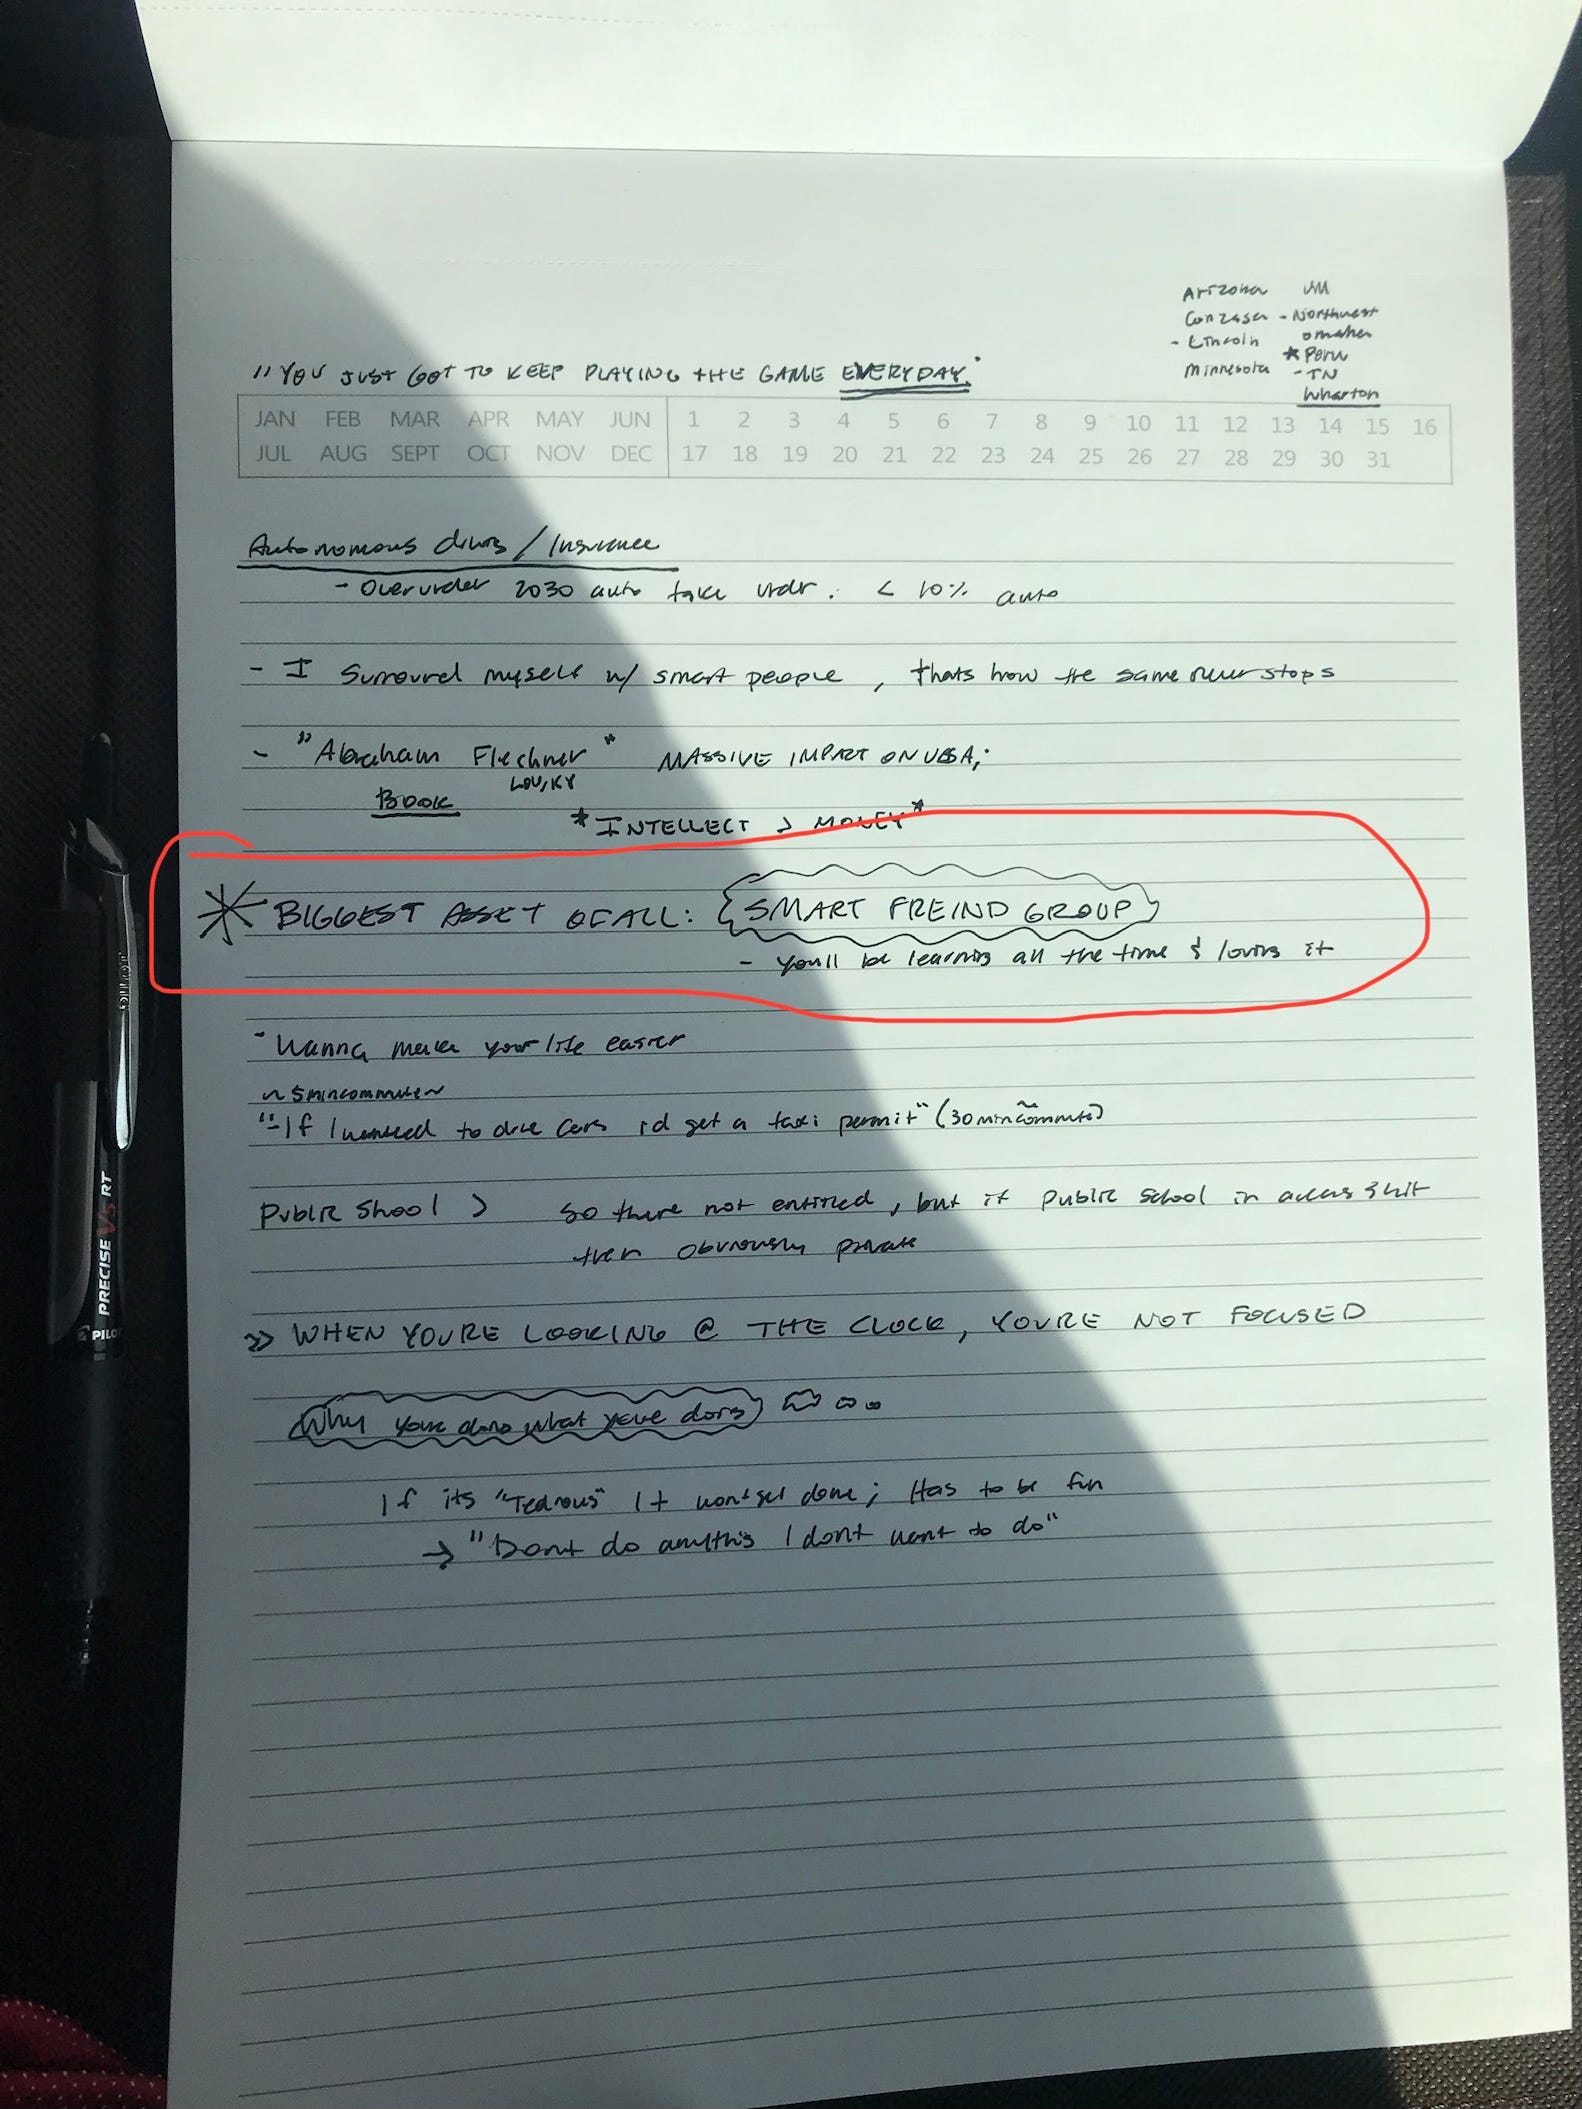 Arizona UM
Gonzaga - Northwest
- Lincoln omaha
Minnesota * Peru
- TN
Wharton
"YOU JUST GOT TO KEEP PLAYING THE GAME EVERYDAY"
JAN FEB MAR APR MAY JUN 1 2 3 4 5 6 7 8 9 10 11 12 13 14 15 16
JUL AUG SEPT OCT NOV DEC 17 18 19 20 21 22 23 24 25 26 27 28 29 30 31
Autonomous driving / Insurance
- Over under 2030 auto take under. < 10% auto
- I Surround myself w/ smart people, thats how the same never stops
- "Abraham Flechner" MASSIVE IMPACT ON USA;
LOU, KY
BOOK
*INTELLECT > MONEY*
* BIGGEST ASSET OF ALL: SMART FREIND GROUP
- you'll be learning all the time & loving it
- Wanna make your life easier
~ 5 min commute ~
"- If I wanted to drive cars id get a taxi permit" (30 min commute)
Public Shool > So there not entitled, but if public school in area is shit
then obviously private
>> WHEN YOURE LOOKING @ THE CLOCK, YOURE NOT FOCUSED
Why youre doing what youre doing
If its "Tedious" It wont get done; Has to be fun
→ "Dont do anything I dont want to do"
PILOT
PRECISE V5 RT
PILOT